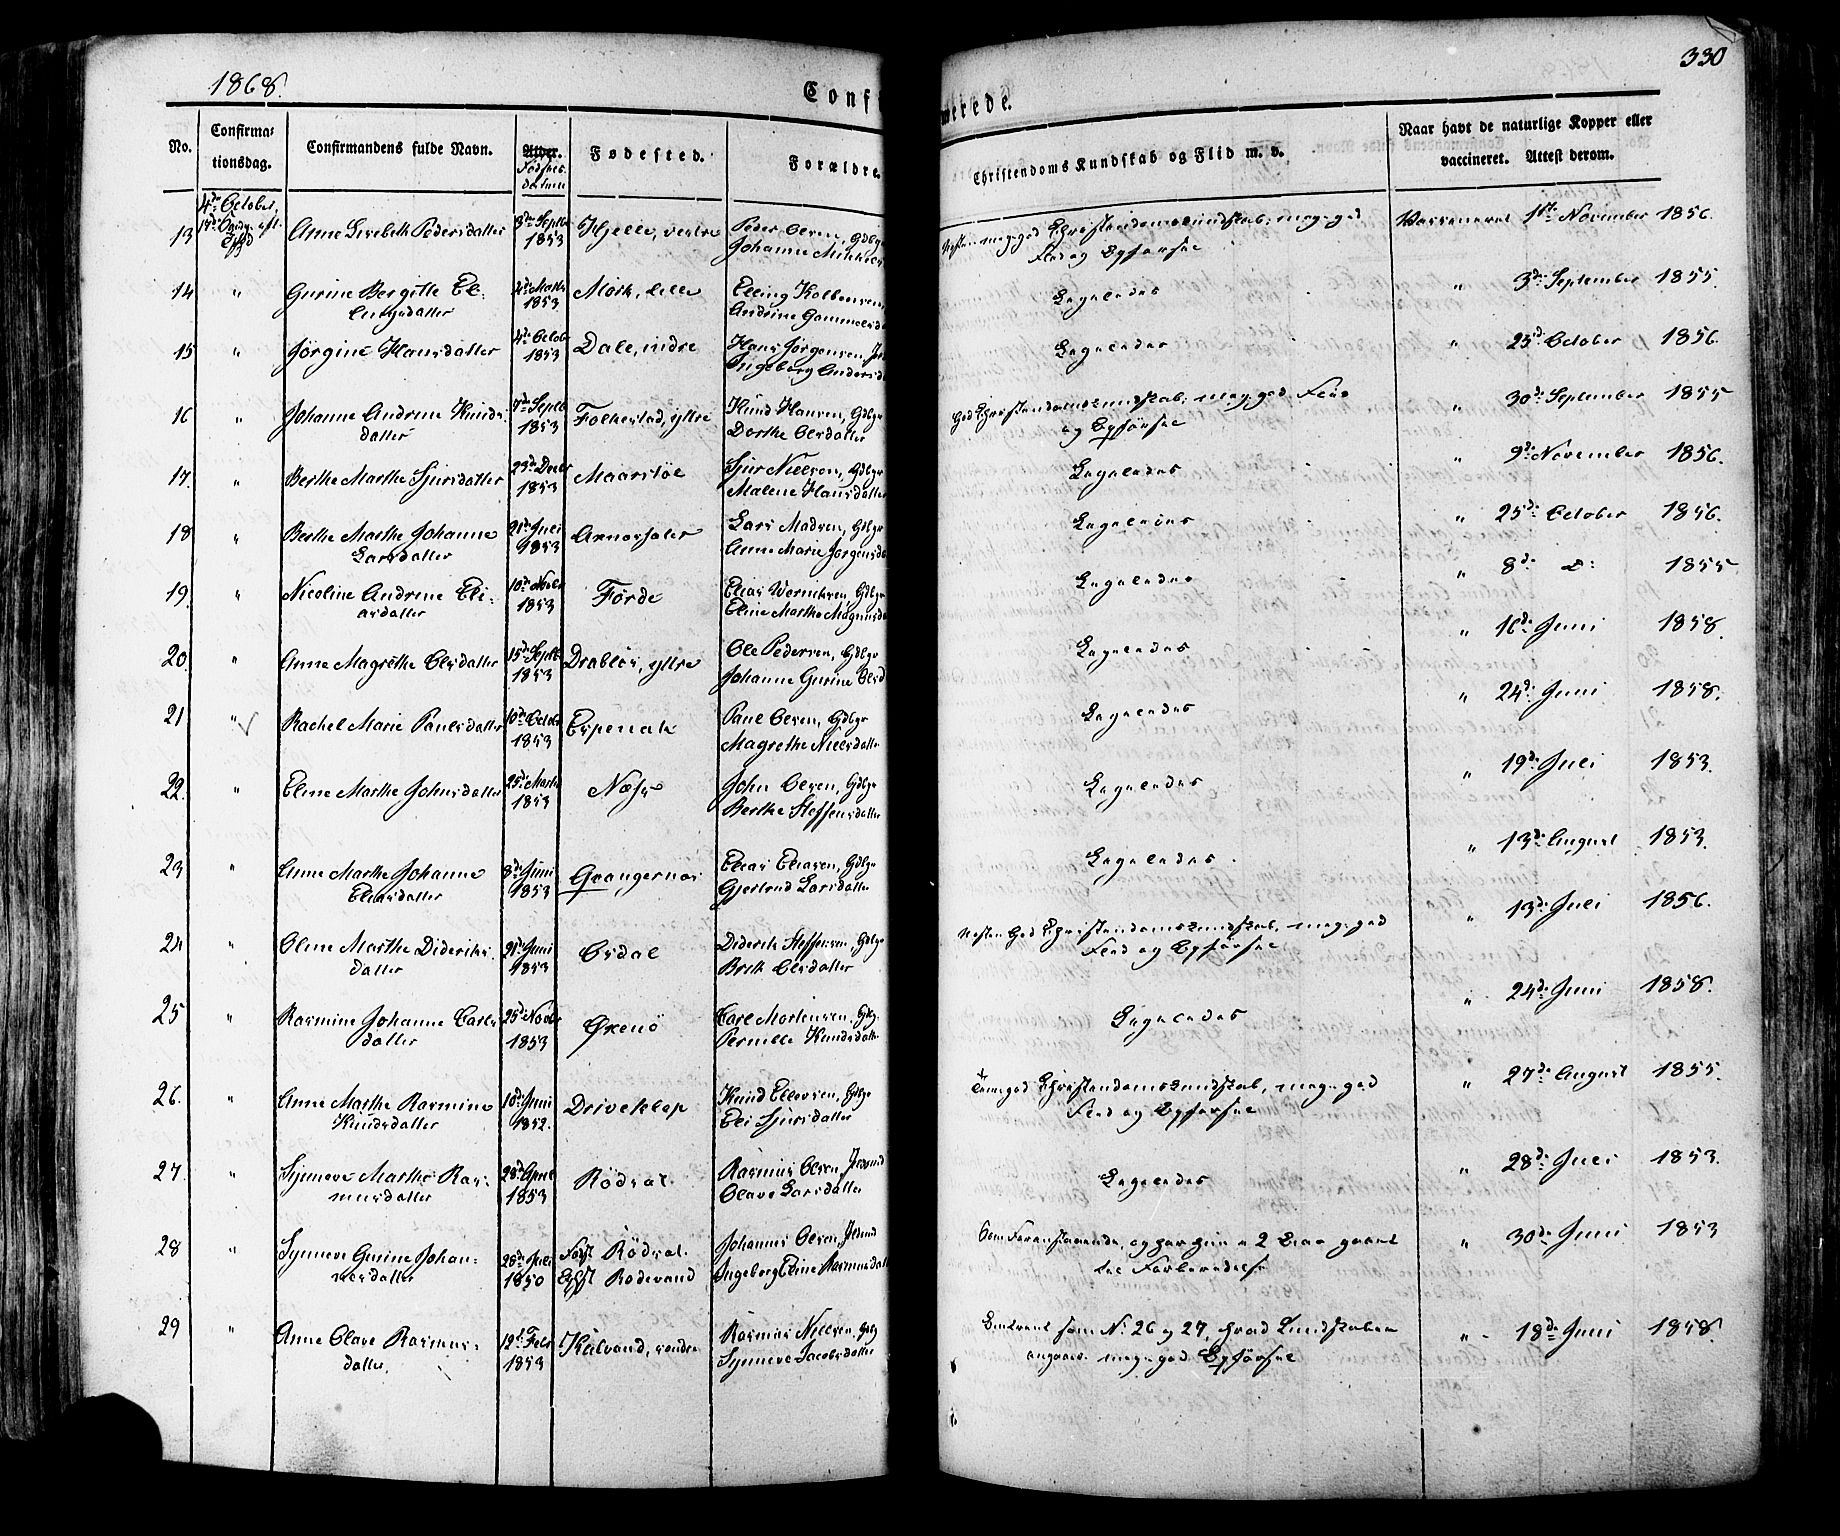 1868.
330
Conf
merede.
No.
Confirma-
tionsdag.
Confirmandens fulde Navn.
Alder.
Fødsels
datum
Fødested.
Forældre
Christendoms Kundskab og Flid m. v.
Naar havt de naturlige Kopper eller
vaccineret. Attest derom.
13 4de October, Anne Lisebeth Pedersdatter 8de Septb 1853 Hjelle, vestre Peder Olsen, Gdbgr
Johanne Mikkels
meg. god Christendomskundskab, meg. god
Flid og Opførsel
Vaccineret 1ste November 1856.
14 " Gurine Bergitte El-
lingsdatter
1853 Mork, lille Elling Kolbensen,
Andrine Gammelsd
Ligeledes
" 3de September 1855.
15 " Jørgine Hansdatter 4de Octob 1853 Dale, indre Hans Jørgensen,
Ingeborg Andersd
Ligeledes
" 23d October 1856.
16 " Johanne Andrine Knuds-
datter
7de Septb 1853 Folkestad, ytre Knud Hansen, Gdbgr
Dorthe Olsdatter
God Christendomskundskab, meg. god Flid
og Opførsel
" 30de September 1855
17. " Berthe Marthe Sjursdatter 23de Decbr 1853 Maarstøl Sjur Nielsen, Gdbgr
Malene Hansdatter
Ligeledes
" 9de November 1856.
18 " Berthe Marthe Johanne
Larsdatter
21de Juli 1853 Lars Madsen, Gdbgr
Anne Marie Jørgensd
Ligeledes
" 25de October 1856.
19. " Nicoline Andrine Eli-
asdatter
10de Novbr 1853 Førde Elias Gdbgr
Eline Marthe Magnusd
Ligeledes
" 8de do: 1855
20. " Anne Magrethe Olsdatter 15de Septb 1853 Drabløs, ytre Ole Pedersen, Gdbgr
Johanne Gurine Olsd
Ligeledes
" 16de Juni 1858.
21 " Rachel Marie Paulsdatter 10de Octobr 1853 Espenak Paul Olsen, Gdbgr
Magrethe Nielsdatter
Ligeledes
" 24de Juni 1858.
22. " Eline Marthe Johnsdatter 25de Marts 1853 John Olsen, Gdbgr
Berthe Steffensdatter
Ligeledes
" 19de Juli 1853.
23 " Anne Marthe Johanne
Eliasdatter
8de Juni 1853 Elias Eliasen, Gdbgr
Gjertrud Larsdatter
Ligeledes
" 13de August 1853.
24 " Oline Marthe Dideriks-
datter
21de Juni 1853 Osdal Diderik Steffensen, Gdbgr
Brith Olsdatter
Næsten God Christendomskundskab, meg. god
Flid og Opførsel
" 13de Juli 1856.
25 " Rasmine Johanne Carls-
datter
25de Novbr 1853 Carl Mortensen, Gdbgr
Pernille Knudsdatter
Ligeledes
" 24de Juni 1858.
26. " Anne Marthe Rasmine
Knudsdatter
18de Juni 1852. Driveklep Knud Ellevsen, Gdbgr
Eli Sjursdatter
Temg. god Christendomskundskab, meg. god
Flid og Opførsel
" 27de August 1855.
27. " Synneve Marthe Ras-
musdatter
28de April 1853 Rødsæt Rasmus Olsen,
Olave Larsdatter
Ligeledes
" 28de Juli 1853.
28 " Synneve Gurine Johan-
nesdatter
28de Juli 1850 Født Rødsæt.
Opfst Rødevand
Johannes Olsen,
Ingeborg Eline Rasmusdatt
Som Foranstaaende, og har hun i 2 Aar gaaet
til Forberedelse
" 30de Juni 1853
29 " Anne Olave Rasmus-
datter.
12te Febr 1853 Kilvand, søndre Rasmus Nielsen, Gdbg
Synneve Jacobsdatter
Omtrent som N: 26 og 27, hvad Kundskaben
angaaer. meg. god Opførsel
" 18de Juni 1858.